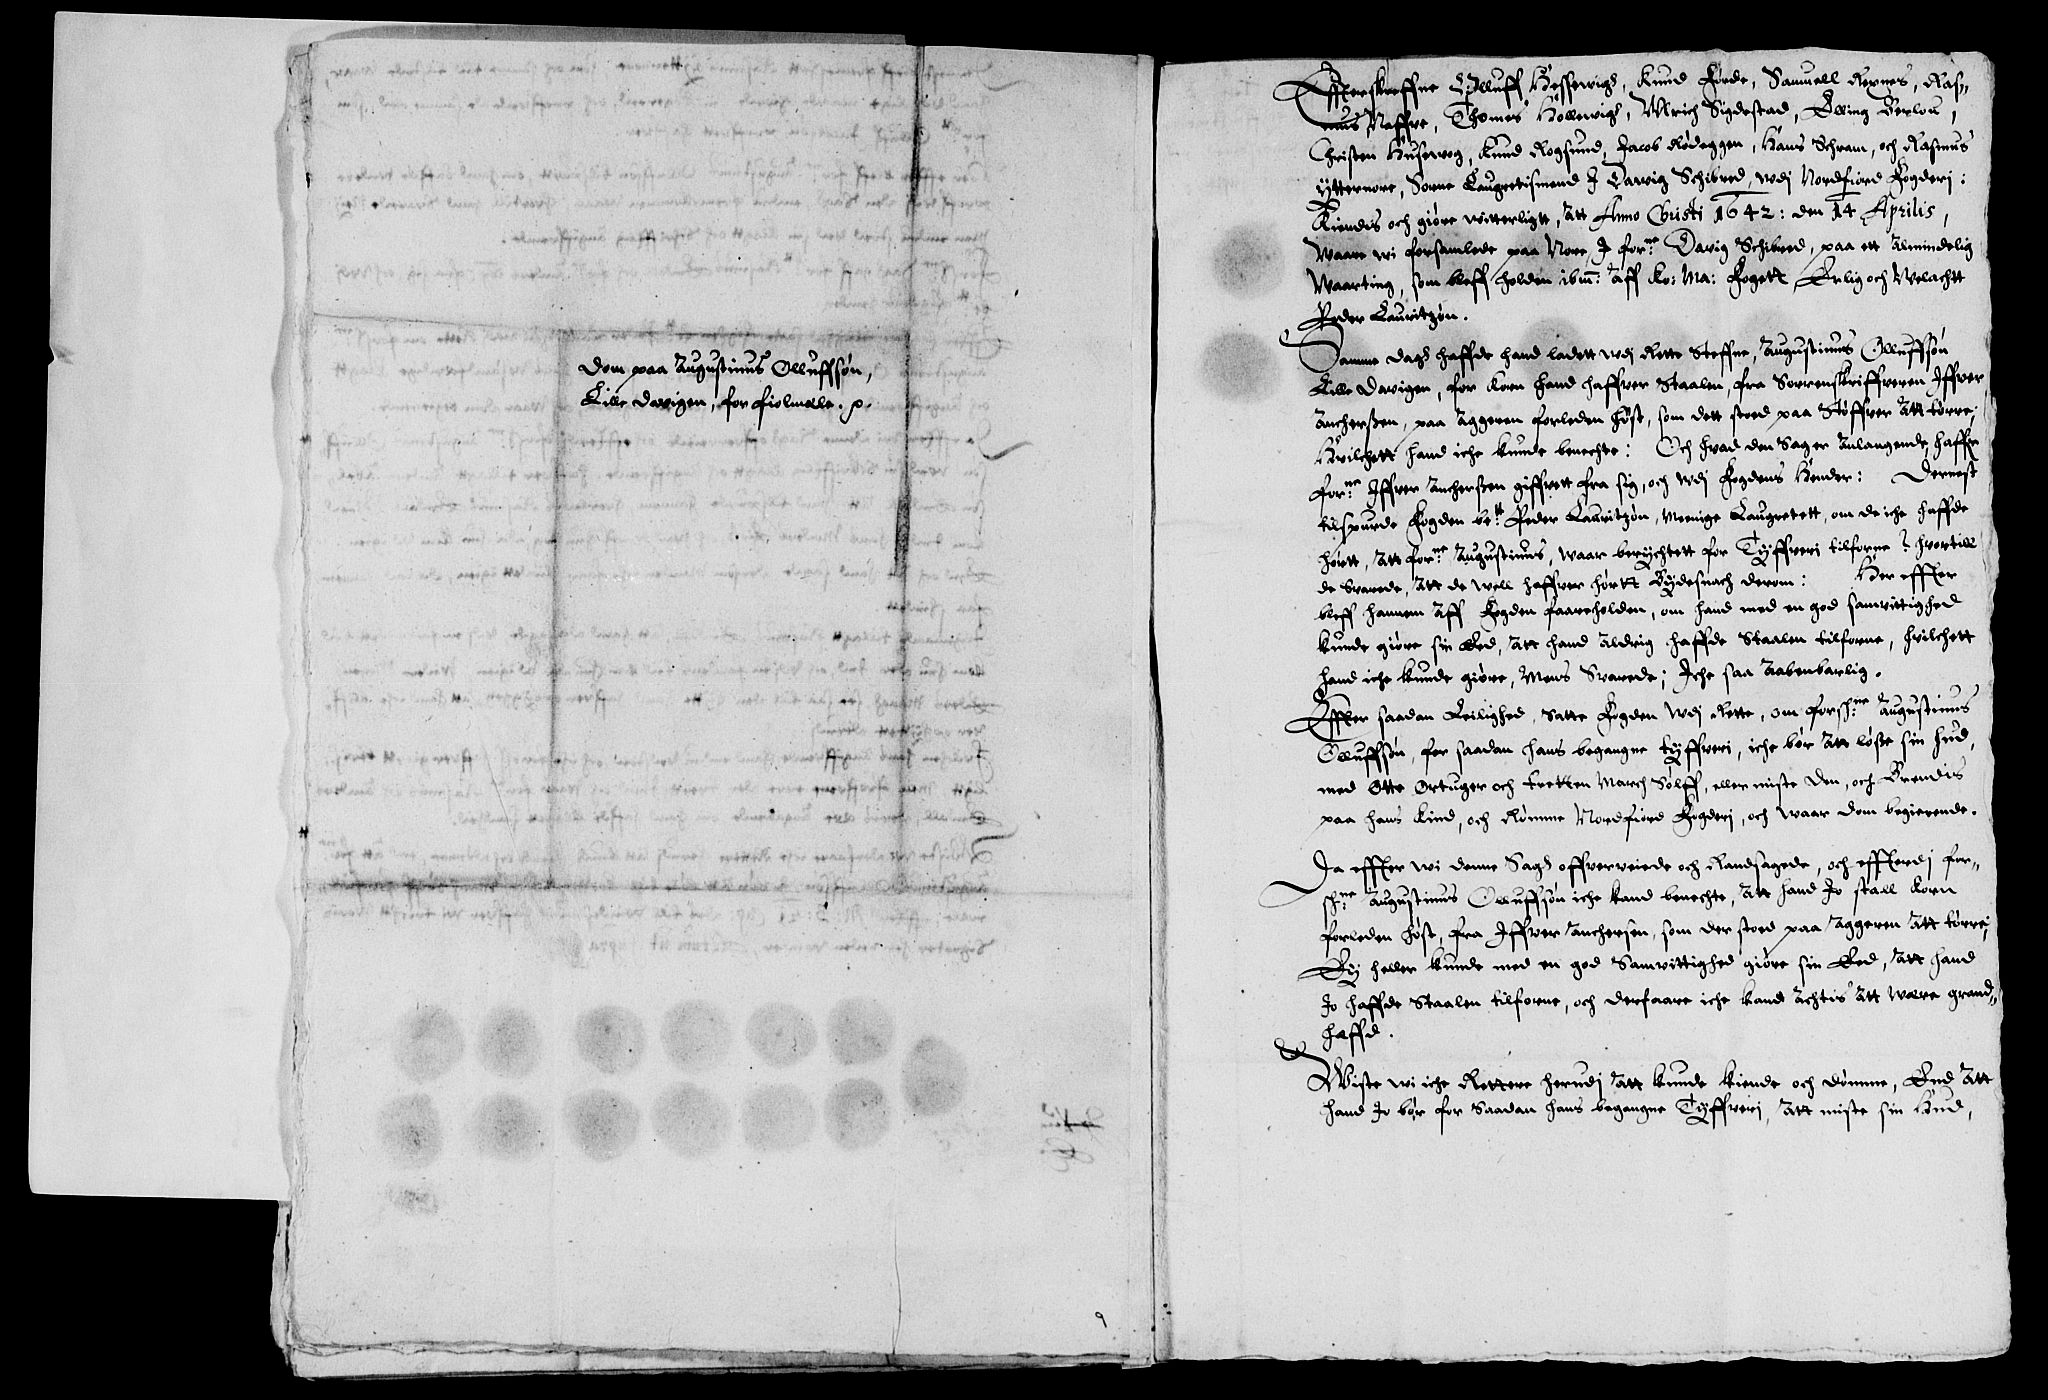 Dom paa Augustinus Olluffsøn,
Lille Davigen, for fiolmelle. p.
9
Effterskreffne Olluff Hessewigh, Knud Førde, Samuell Røxnes, Ras-
mus Naffve, Thomes Hollewigh, Ulrich Sigdestad, Elling Berlou,
Christen Husevog, Knud Rogsund, Jacob Rødeggen, Hans Schram, och Rasmus
Ytternore, Sorne Laugrettismend J Dawig Schibred, wdj Nordfiord Fogderj:
Kiendis och giøre witterligtt, Att Anno Christi 1642: den 14 Aprilis,
Waare wi forsamlede paa Nore J for:ne Davig Schibred, paa ett Almindelig
Waarting, som bleff holden ibm: Aff Ko: Ma: Fogett, Erlig och Welachtt
Peder Lauritzøn.
Samme dagh haffde hand ladett wdj Rette Steffne, Augustinus Olluffsøn
Lille Davigen, for Korn hand haffver Staalen, fra Sorrenskriffveren Iffver
Ancherßen, paa Aggeren forleden høst, som dett stoed paa Støffver Att tørre;
Hvilchett hand iche kunde benechte: Och hvad den Sag er Anlangende, haffr
for:ne Iffver Ancherßen giffvett fra sig, och wdj Fogdens Hender: Dernest
tilspurde Fogden be:tt Peder Lauritzøn, Meenige Laugretett, om de iche haffde
hørtt, Att for:ne Augustinus, waar berÿchtett for Tÿffveri tilforne? hvortill
de Svarede, Att de well haffver hørtt Bÿdesnach derom: Her effter
bleff hannem Aff Fogden faareholden, om hand med en god samvittighed
kunde giøre sin Eed, Att hand Aldrig haffde Staalen tilforne, hvilchett
hand iche kunde giøre, Mens Svarede; Iche saa Aabenbarlig.
Effter saadan Leilighed, Satte Fogden Wdj Rette, om forsch:ne Augustinus
Olluffsøn, for saadan hans begangne tÿffveri, iche bør Att løße sin hud,
med Otte Ortuger och tretten March Sølff, eller miste den, och Brendis
paa hans Kind, och Rømme Nordfiord Fogderj, och waar dom begierende.
Da effter wi denne Sagh offverveiede och Randsagede, och effterdj for-
sch:ne Augustinus Olluffsøn iche kand benechte, Att hand Jo stall Korn
forleden høst, fra Iffver Anchersen, som der stoed paa Aggeren Att tørre;
Eÿ heller kunde med en god Samvittighed giøre sin Eed, Att hand
Jo haffde Staalen tilforne, och derfaare iche kand Achtis Att Være grand-
hæffd.
Wiste wi iche Rettere herudj Att kunde kiende och dømme, End Att
hand Jo bør for Saadan hans begangne Tÿffverj, Att miste sin Hud,